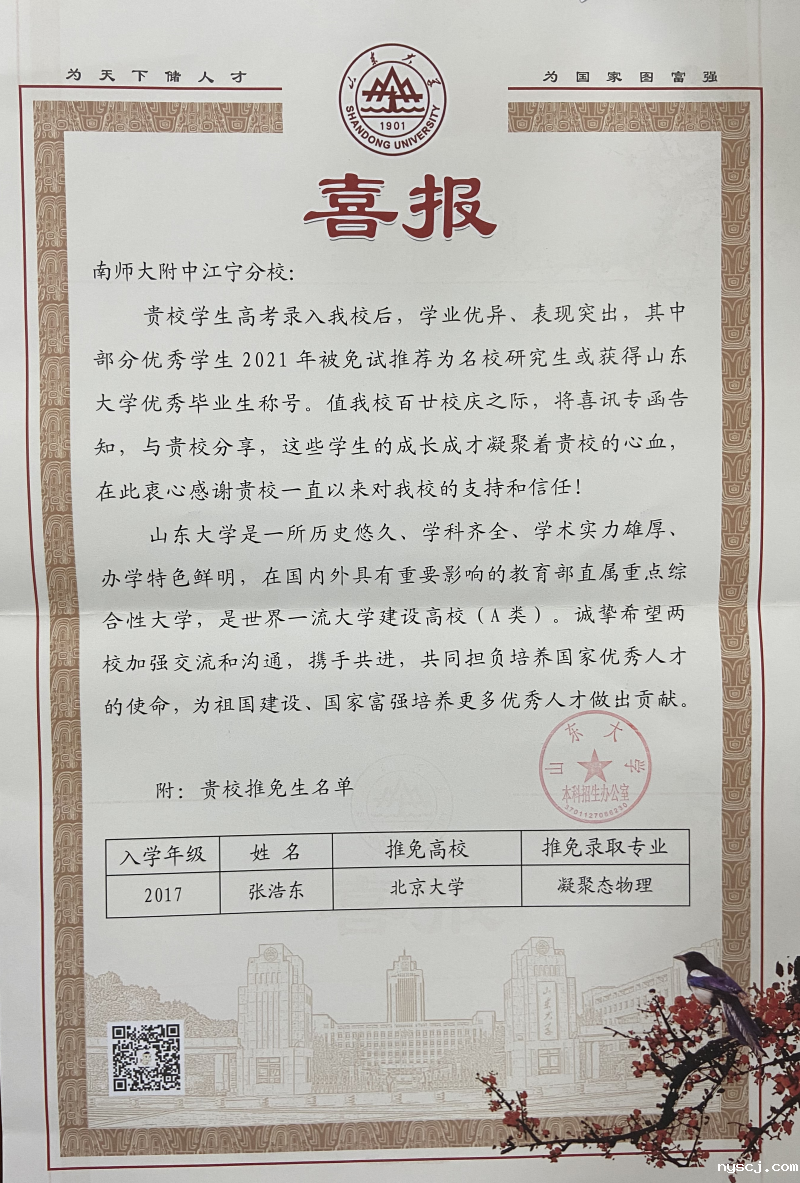 为天下储人才
为国家图富强
山东大学
1901
SHANDONG UNIVERSITY
喜报
南师大附中江宁分校：
贵校学生高考录入我校后，学业优异、表现突出，其中
部分优秀学生2021年被免试推荐为名校研究生或获得山东
大学优秀毕业生称号。值我校百廿校庆之际，将喜讯专函告
知，与贵校分享，这些学生的成长成才凝聚着贵校的心血，
在此衷心感谢贵校一直以来对我校的支持和信任！
山东大学是一所历史悠久、学科齐全、学术实力雄厚、
办学特色鲜明，在国内外具有重要影响的教育部直属重点综
合性大学，是世界一流大学建设高校（A类）。诚挚希望两
校加强交流和沟通，携手共进，共同担负培养国家优秀人才
的使命，为祖国建设、国家富强培养更多优秀人才做出贡献。
山东大学
本科招生办公室
3701127056230
附：贵校推免生名单
入学年级 姓名 推免高校 推免录取专业
2017 张浩东 北京大学 凝聚态物理
山东大学
nyscj.com